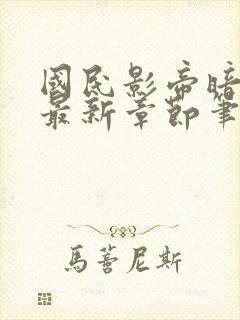 國民影帝暗
最新章節筆
馬蓍尼斯